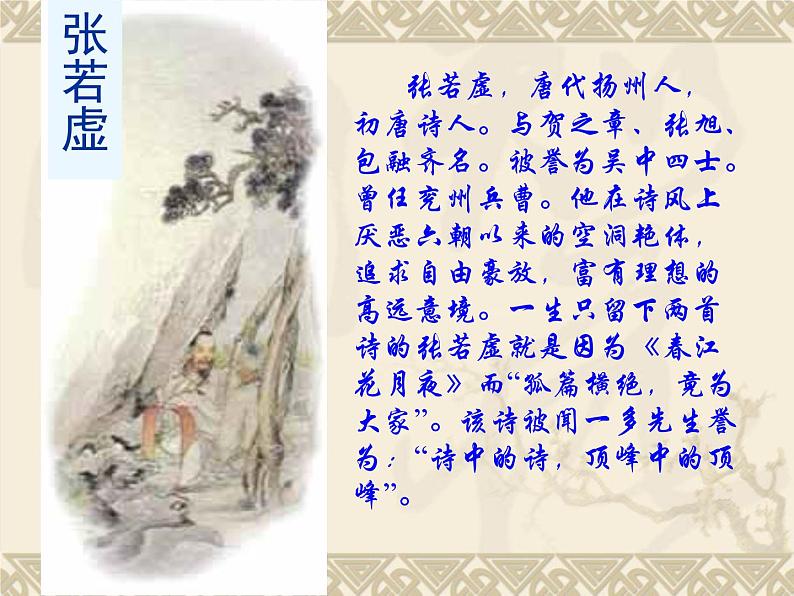 张若虚
张若虚，唐代扬州人，
初唐诗人。与贺之章、张旭、
包融齐名。被誉为吴中四士。
曾任兖州兵曹。他在诗风上
厌恶六朝以来的空洞艳体，
追求自由豪放，富有理想的
高远意境。一生只留下两首
诗的张若虚就是因为《春江
花月夜》而“孤篇横绝，竟为
大家”。该诗被闻一多先生誉
为：“诗中的诗，顶峰中的顶
峰”。